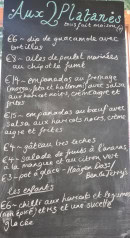 Aux 2 Platanes
tout fait maison (!)
€6 - dip de guacamole avec
tortillas
€8 - ailes de poulet marinées
au chipotle fumé
€14 - empanadas au fromage
(mozza, feta et halloumi) avec salsa
aux haricots noirs, crème aigre et
frites
€15 - empanadas au bœuf avec
salsa aux haricots noirs, crème
aigre et frites
€4 - gâteau tres leches
€4 - salade de fruits à l'ananas,
mangue et au citron vert
€3 - pot à glace - Häagen Dazs/
Ben & Jerry's
les enfants
€6 - chilli aux haricots et légumes
(non épicé) et riz et une sucette
glacée